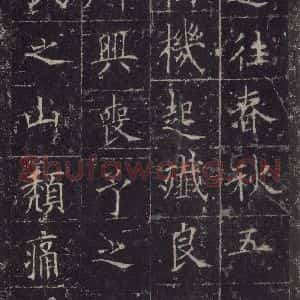 往春秋五
機起殲良
興喪予之
之山頹痛
Shufawang.CN